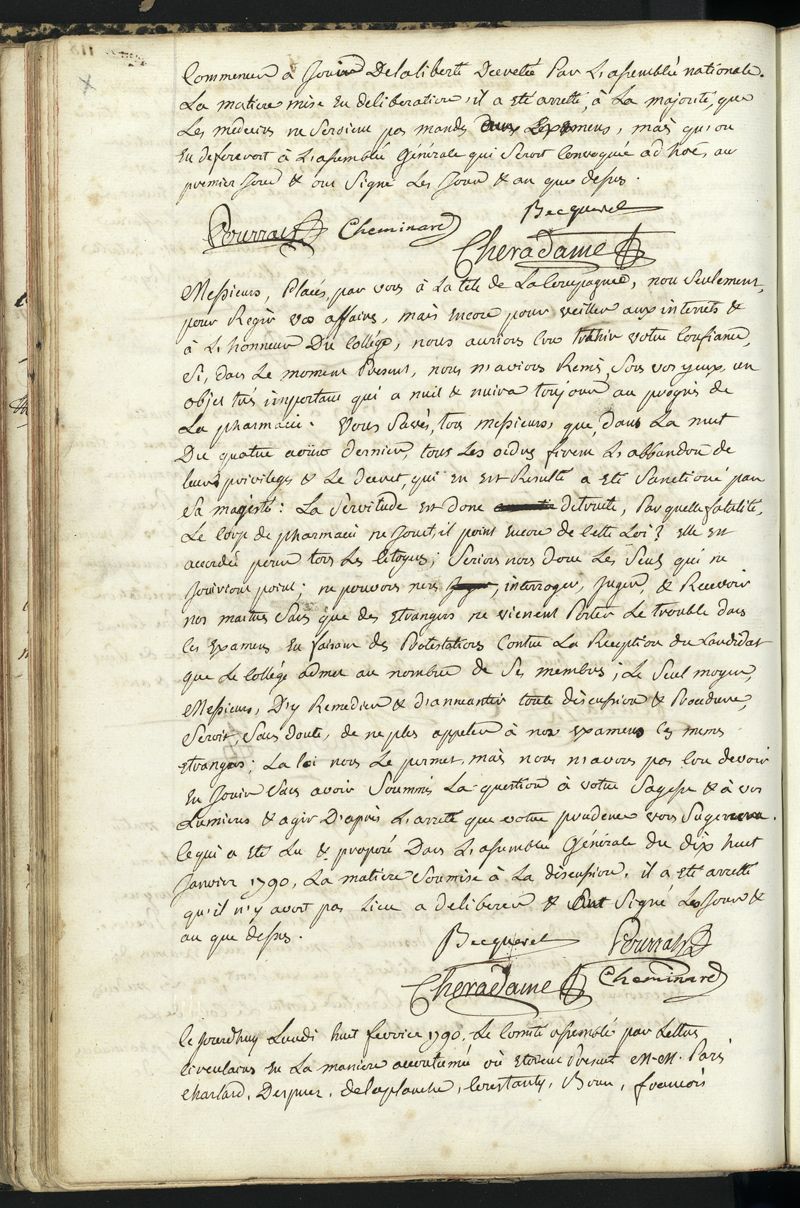 Commencer a Jouir De la liberté Decretée Par L'assemblée nationale.
La matiere mise En deliberation, il a eté arretté, à La majorité, que
Les médecins ne Seroient pas mandés aux Examens, mais qu'on
En defereroit à L'assemblée Générale qui Seroit Convoquée ad hoc, au
premier Jour & ont Signé Les Jour & an que dessus.
Becquerel
Pourrat Cheminard
Cheradame
Messieurs, Placés, par vous à La tete de La Compagnie, non Seulement,
pour Regir vos affaires, mais Encore pour veiller aux interrets &
à L'honneur Du Collége, nous aurions Cru trahir votre Confiance,
Si, dans Le moment Present, nous n'avions Remis, Sous vos yeux, un
objet très important qui a nuit & nuira toujours au progrès de
La pharmacie. Vous Savés, tous messieurs, que, dans La nuit
Du quatre août dernier, tous Les ordres firent L'abbandon de
leurs privileges & Le Decret, qui En Est Resulté a Eté Sanctioné par
Sa majesté: La Servitude Est donc detruite, Par quelle fatalité,
Le Corps de pharmacie ne Jouit, il point Encore de Cette Loi? Elle Est
accordée pour tous Les Citoyens; Serions nous donc Les Seuls qui ne
Jouirions point; ne pouvons nous, interroger, Juger, & Recevoir
nos maitres Sans que des Etrangers ne vienent Porter Le trouble dans
Ces Examens En faisant des Protestations Contre La Reception du Candidat
que Le Collége admet au nombre de Ses membres; Le Seul moyen,
Messieurs, D'y Remedier & d'anneantir toute discussion & Procedure,
Seroit, Sans doute, de ne plus appeler à nos Examens Ces memes
Etrangers; La loi nous Le permet, mais nous n'avons pas Cru devoir
En Jouir Sans avoir Soummis La question à votre Sagesse & à vos
Lumieres & agir D'après L'arreté que votre prudence vous Sugerera.
Ce qui a Eté Lu & proposé Dans L'assemblée Générale du dix huit
Janvier 1790, La matiere Soumise à La discussion, il a Eté arretté
qu'il n'y avoit pas Lieu a deliberer & ont Signé Les Jour &
an que dessus.
Becquerel Pourrat
Cheradame Cheminard
Cejourdhuy Lundi huit fevrier 1790. Le Comité assemblé par Lettres
Circulaires En La maniere accoutumée où Etoient Present M.M. Paris
Charlard, Despres, delaplanche, Costanty, Boun, francois